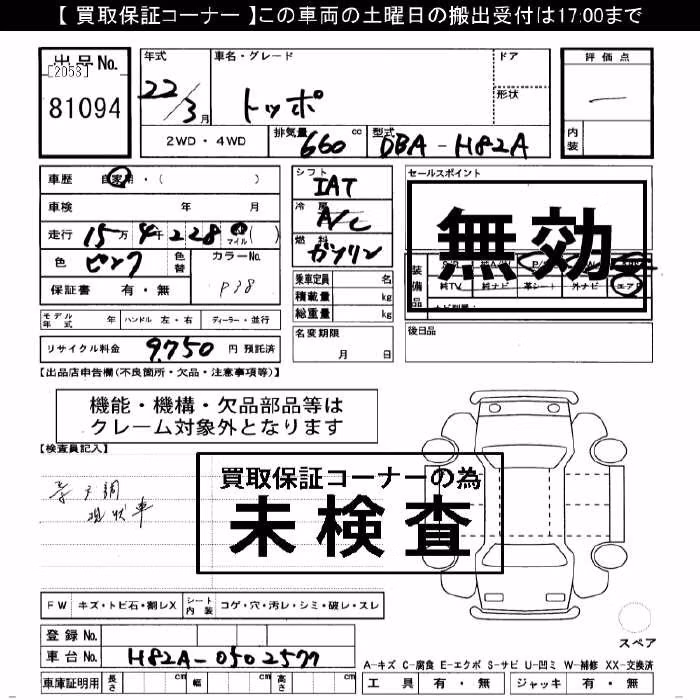 【 買取保証コーナー 】この車両の土曜日の搬出受付は17:00まで
出品No.
[2053]
81094
年式
22/3月
車名・グレード
トッポ
ドア
形状
評価点
内装
2WD・4WD
排気量 660 cc
型式 DBA-H82A
車歴 自家用・( )
車検 年 月
走行 15万4千228
マイル ( )
色 ピンク
色替
カラーNo.
P38
保証書 有・無
シフト IAT
冷房 A/C
燃料 ガソリン
乗車定員 名
積載量 kg
総重量 kg
セールスポイント
無効
装備品
純TV 純ナビ 革シート 外ナビ エアB
モデル年式 年 ハンドル 左・右 ディーラー・並行
名変期限
月 日
後日品
リサイクル料金 9,750 円 預託済
【出品店申告欄(不良箇所・欠品・注意事項等)】
機能・機構・欠品部品等は
クレーム対象外となります
【検査員記入】
買取保証コーナーの為
未検査
現状車
FW キズ・トビ石・割レX
シート内装 コゲ・穴・汚レ・シミ・破レ・スレ
スペア
登録No.
車台No. H82A-0502577
A-キズ C-腐食 E-エクボ S-サビ U-凹ミ W-補修 XX-交換済
車庫証明用 長さ cm 幅 cm 高さ cm
工具 有・無 ジャッキ 有・無